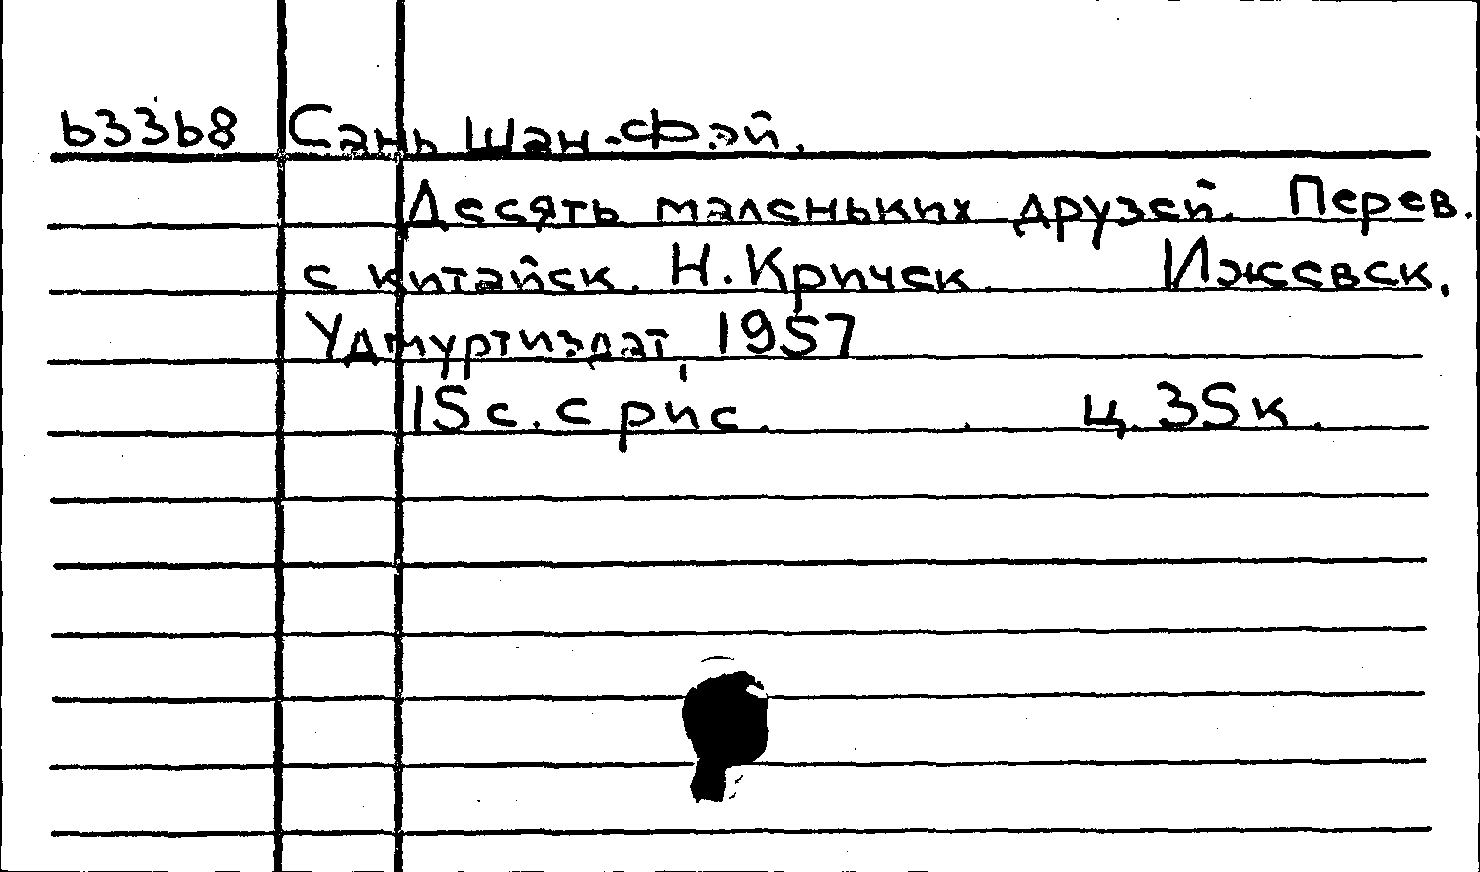 63368 Сань Шан-Фэй.
Десять маленьких друзей. Перев.
с китайск. Н. Кричек. Ижевск,
Удмуртиздат, 1957
15 с. с рис. ц. 35 к.